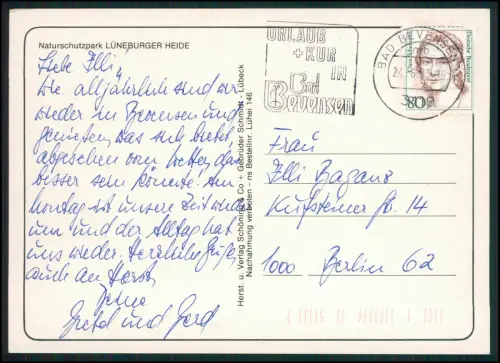 Naturschutzpark LÜNEBURGER HEIDE
Liebe Illi!
Wie alljährlich sind wir
wieder in Bevensen und
genießen, was sich bietet,
abgesehen vom Wetter, das
besser sein könnte! Am
Montag ist unsere Zeit wieder
um und der Alltag hat
uns wieder. Herzliche Grüße,
auch an Horst,
Deine
Gretel und Gerd
Herst. u. Verlag Schöning & Co + Gebrüder Schmidt - Lübeck
Nachahmung verboten - ns Bestellnr. Lühei 146
URLAUB
+ KUR
IN
Bad
Bevensen
BAD BEVENSEN
Deutsche Bundespost
80
Frau
Illi Bagans
Kufsteiner Str. 14
1000 Berlin 62